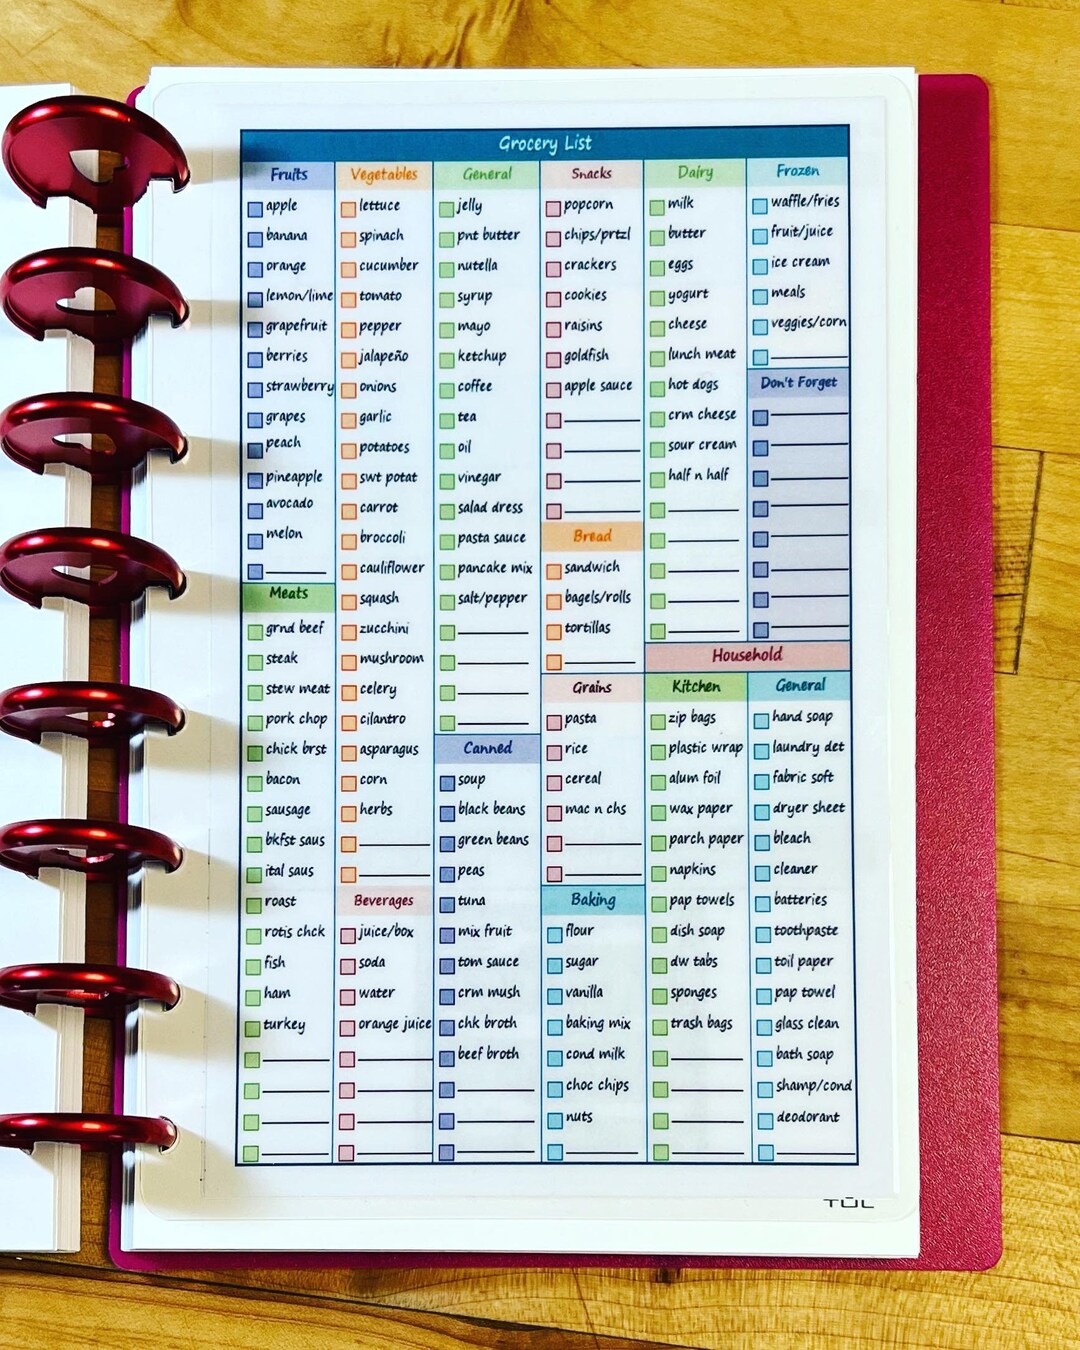 Grocery List
Fruits
apple
banana
orange
lemon/lime
grapefruit
berries
strawberry
grapes
peach
pineapple
avocado
melon
Meats
grnd beef
steak
stew meat
pork chop
chick brst
bacon
sausage
bkfst saus
ital saus
roast
rotis chck
fish
ham
turkey
Vegetables
lettuce
spinach
cucumber
tomato
pepper
jalapeño
onions
garlic
potatoes
swt potat
carrot
broccoli
cauliflower
squash
zucchini
mushroom
celery
cilantro
asparagus
corn
herbs
Beverages
juice/box
soda
water
orange juice
General
jelly
pnt butter
nutella
syrup
mayo
ketchup
coffee
tea
oil
vinegar
salad dress
pasta sauce
pancake mix
salt/pepper
Canned
soup
black beans
green beans
peas
tuna
mix fruit
tom sauce
crm mush
chk broth
beef broth
Snacks
popcorn
chips/prtzl
crackers
cookies
raisins
goldfish
apple sauce
Bread
sandwich
bagels/rolls
tortillas
Grains
pasta
rice
cereal
mac n chs
Baking
flour
sugar
vanilla
baking mix
cond milk
choc chips
nuts
Dairy
milk
butter
eggs
yogurt
cheese
lunch meat
hot dogs
crm cheese
sour cream
half n half
Frozen
waffle/fries
fruit/juice
ice cream
meals
veggies/corn
Don't Forget
Household
Kitchen
zip bags
plastic wrap
alum foil
wax paper
parch paper
napkins
pap towels
dish soap
dw tabs
sponges
trash bags
General
hand soap
laundry det
fabric soft
dryer sheet
bleach
cleaner
batteries
toothpaste
toil paper
pap towel
glass clean
bath soap
shamp/cond
deodorant
TUL